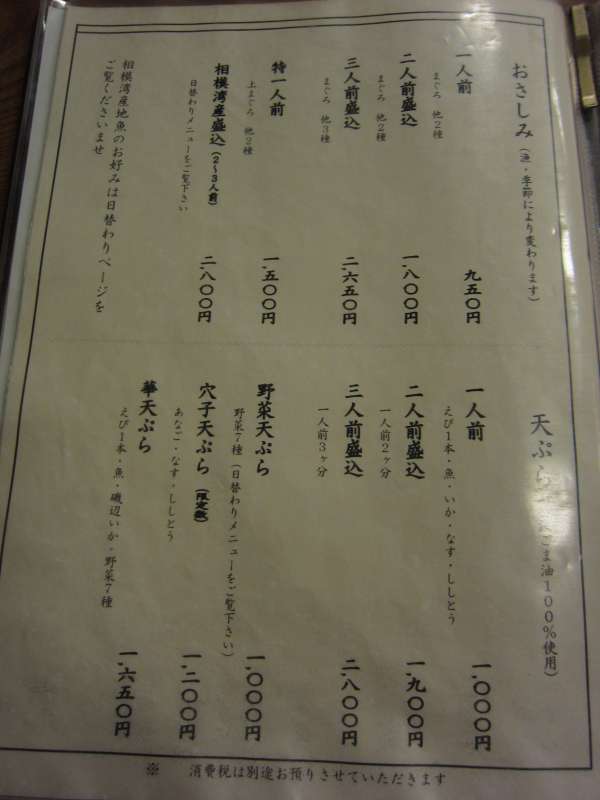 おさしみ（漁・季節により変わります）
一人前 九五〇円
まぐろ 他2種
二人前盛込 一、八〇〇円
まぐろ 他2種
三人前盛込 二、六五〇円
まぐろ 他3種
特一人前 一、五〇〇円
上まぐろ 他2種
相模湾産盛込（2～3人前） 二、八〇〇円
日替わりメニューをご覧下さい
相模湾産地魚のお好みは日替わりページを
ご覧くださいませ
天ぷら ごま油100％使用）
一人前 一、〇〇〇円
えび1本・魚・いか・なす・ししとう
二人前盛込 一、九〇〇円
一人前2ヶ分
三人前盛込 二、八〇〇円
一人前3ヶ分
野菜天ぷら 一、〇〇〇円
野菜7種（日替わりメニューをご覧下さい）
穴子天ぷら（限定数） 一、二〇〇円
あなご・なす・ししとう
華天ぷら 一、六五〇円
えび1本・魚・磯辺いか・野菜7種
※ 消費税は別途お預りさせていただきます